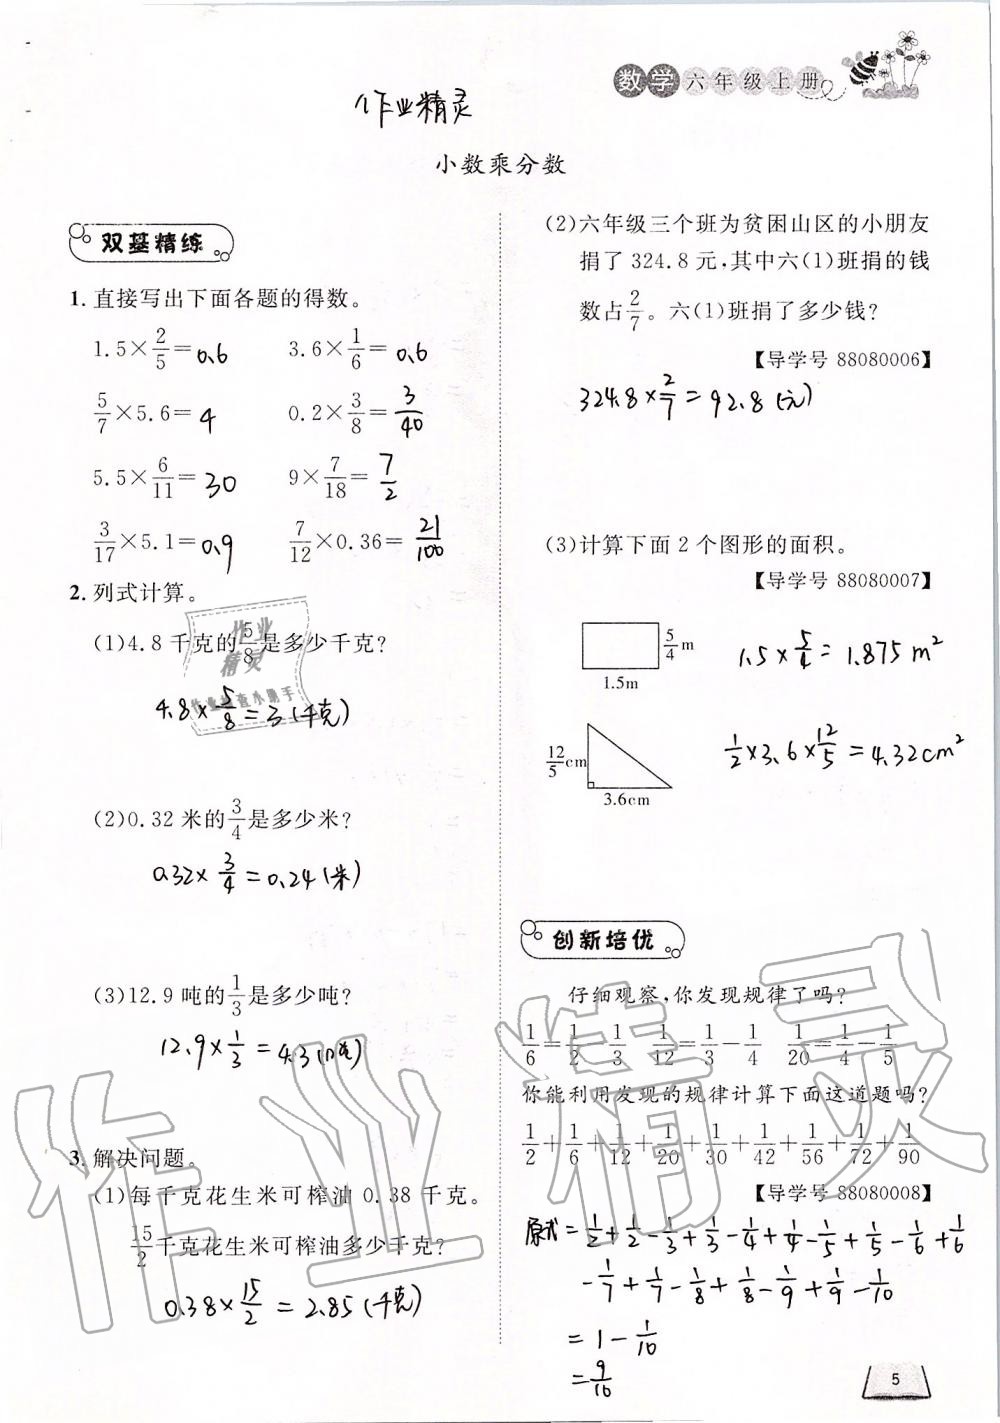 数学六年级上册
作业精灵
小数乘分数
双基精练
1. 直接写出下面各题的得数。
1.5×2/5=0.6 3.6×1/6=0.6
5/7×5.6=4 0.2×3/8=3/40
5.5×6/11=30 9×7/18=7/2
3/17×5.1=0.9 7/12×0.36=21/100
2. 列式计算。
(1)4.8千克的5/8是多少千克?
4.8×5/8=3(千克)
(2)0.32米的3/4是多少米?
0.32×3/4=0.24(米)
(3)12.9吨的1/3是多少吨?
12.9×1/3=4.3(吨)
3. 解决问题。
(1)每千克花生米可榨油0.38千克。
15/2千克花生米可榨油多少千克?
0.38×15/2=2.85(千克)
(2)六年级三个班为贫困山区的小朋友
捐了324.8元,其中六(1)班捐的钱
数占2/7。六(1)班捐了多少钱?
【导学号 88080006】
324.8×2/7=92.8(元)
(3)计算下面2个图形的面积。
【导学号 88080007】
5/4 m
1.5m
1.5×5/4=1.875m²
12/5 cm
3.6cm
1/2×3.6×12/5=4.32cm²
创新培优
仔细观察,你发现规律了吗?
1/6=1/2-1/3 1/12=1/3-1/4 1/20=1/4-1/5
你能利用发现的规律计算下面这道题吗?
1/2+1/6+1/12+1/20+1/30+1/42+1/56+1/72+1/90
【导学号 88080008】
原式=1/2+1/2-1/3+1/3-1/4+1/4-1/5+1/5-1/6+1/6
-1/7+1/7-1/8+1/8-1/9+1/9-1/10
=1-1/10
=9/10
5
作业
精灵
作业检查小助手
作业精灵